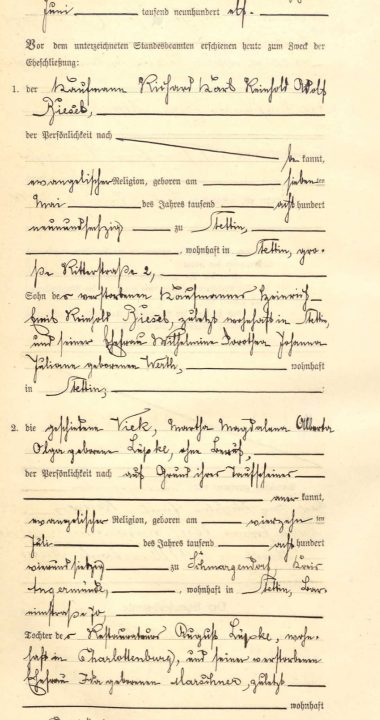 Juni tausend neunhundert elf.
Vor dem unterzeichneten Standesbeamten erschienen heute zum Zweck der
Eheschließung:
1. der Kaufmann Richard Karl Reinhold Adolf
der Persönlichkeit nach
be kannt,
evangelischer Religion, geboren am sieben ten
Mai des Jahres tausend acht hundert
neunundsechzig zu Stettin
, wohnhaft in Stettin, gro-
ße Ritterstraße 2,
Sohn des verstorbenen Kaufmannes Heinrich
Emil Reinhold, zuletzt wohnhaft in Stettin,
und seiner Ehefrau Wilhelmine Dorothea Johanna
Juliane geborenen Werth, wohnhaft
in Stettin,
2. die geschiedene Vick, Martha Magdalena Alberta
Olga geborene Lüpke, ohne Beruf,
der Persönlichkeit nach auf Grund ihres Taufscheines
aner kannt,
evangelischer Religion, geboren am vierzehn ten
Juli des Jahres tausend acht hundert
vierundsiebzig zu Schmargendorf, Kreis
Angermünde, wohnhaft in Stettin, Bar-
nimstraße
Tochter des Restaurateurs August Lüpke, wohn-
haft in Charlottenburg, und seiner verstorbenen
Ehefrau Ida geborenen Marschner, zuletzt
wohnhaft